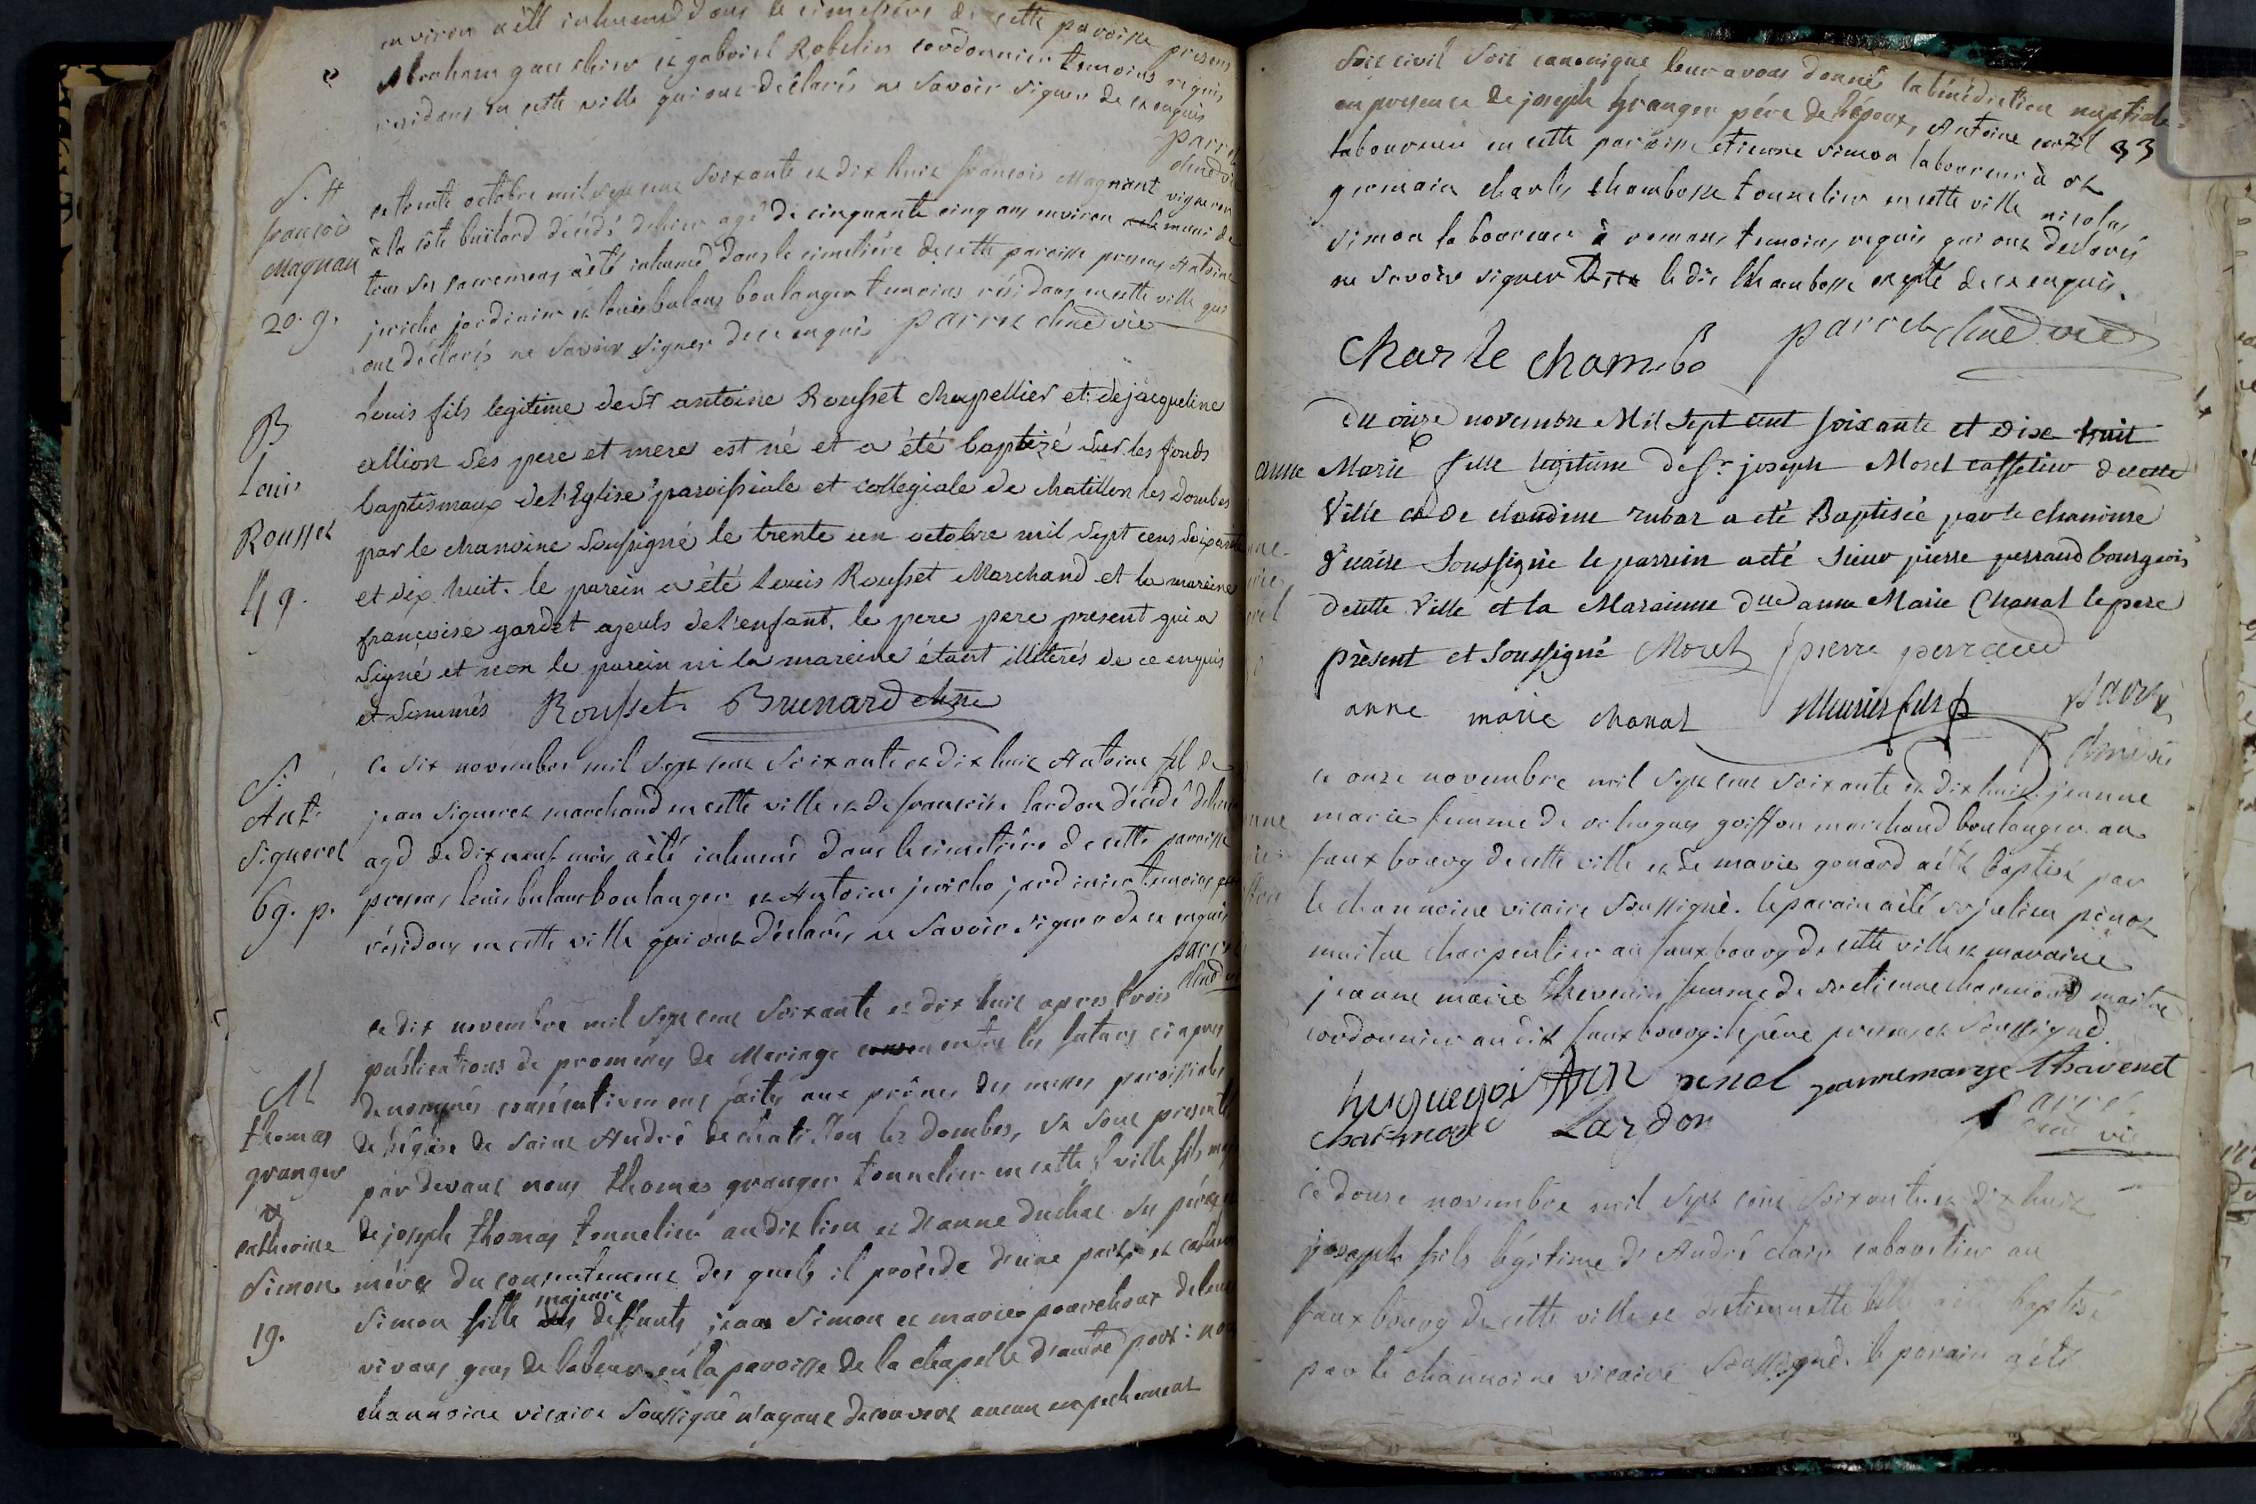 environ a été inhumé dans le cimetière de cette paroisse presens
Abraham gauthier et gabriel Robelin cordonnier temoins requis
residans en cette ville qui ont déclarés ne Savoir signer de ce enquis
parret
chne vic
S. H
françois
Magnan
20. g.
ce trente octobre mil sept cent soixante et dix huit françois Magnant vigneron
à la côte builard décédé d'hier agé de cinquante cinq ans environ muni de
tous ses sacremens a été inhumé dans le cimetière de cette paroisse presens Antoine
jericho jardinier et louis bulans boulanger temoins résidans en cette ville qui
ont déclarés ne savoir signer de ce enquis parret chne vic
B
Louis
Rousset
4 g.
Louis fils legitime de Sr antoine Rousset chapellier et de jacqueline
allion ses pere et mere est né et a été baptizé sur les fonds
baptismaux de l'Eglise paroissiale et collegiale de chatillon les dombes
par le chanoine soussigné le trente un octobre mil sept cens soixante
et dix huit. le parein a été Louis Rousset Marchand et la mareine
françoise gardet ayeuls de l'enfant. le pere pere present qui a
signé et non le parein ni la mareine étant illiterés de ce enquis
et sommés Rousset Brunard chne
S.
Ant.
Signeret
6 g. p.
ce six novembre mil sept cent soixante et dix huit Antoine fils de
jean signeret marchand en cette ville et de françoise lardon décédé d'hier
agé de dix neuf mois a été inhumé dans le cimetière de cette paroisse
presens louis bulans boulanger et Antoine jericho jardinier temoins
résidans en cette ville qui ont déclarés ne savoir signer de ce enquis
parret
chne vic
M
thomas
granger
et
catherine
Simon
19.
ce dix novembre mil sept cent soixante et dix huit apres trois
publications de promesses de Mariage entre les futurs ci apres
denommés consécutivement faites aux prônes des messes paroissiales
de l'église de saint André de chatillon les dombes, se sont presentés
par devant nous thomas granger tonnelier en cette ville fils
de joseph thomas tonnelier audit lieu et d'anne duchat ses père et
mère du consentement des quels il procède d'une part et catherine
Simon fille majeure des deffunts jean Simon et marie pourchoux de leur
vivans gens de labeur en la paroisse de la chapelle d'autre part: nous
channoine vicaire soussigné n'ayant decouvert aucun empechement
soit civil soit canonique leur avons donnés la bénédiction nuptiale
en presence de joseph granger père de l'époux, Antoine
33
laboureur en cette paroisse etienne simon laboureur à st
germain charles chambosse tonnelier en cette ville nicolas
simon laboureur à romans temoins requis qui ont declarés
ne savoir signer le dit Chambosse excepté de ce enquis.
Charle chambô parret chne vic
Du onze novembre Mil sept cent soixante et dix huit
anne Marie fille legitime de Sr joseph Morel caffetier de cette
Ville et de claudine rubat a été Baptisée par le chanoine
Vicaire soussigné le parrein a été sieur pierre perraud bourgeois
de cette Ville et la Marainne dlle anne Marie Chanal le pere
présent et soussigné Morel pierre perraud
anne marie chanal Meunier fils parret
chne vic
ce onze novembre mil sept cent soixante et dix huit jeanne
marie femme de sr hugues goiffon marchand boulanger au
fauxbourg de cette ville et de marie gonard a été baptisé par
le channoine vicaire soussigné. le parain a été sr julien pinot
maitre charpentier au fauxbourg de cette ville et maraine
jeanne marie thevenin femme de sr etienne charmond maitre
cordonnier audit fauxbourg: le père present et soussigné
hugue goiffon penel jeanne marye thavenet
charmond Lardon parret
chne vic
ce douze novembre mil sept cent soixante et dix huit
joseph fils légitime d'André clair cabaretier au
fauxbourg de cette ville et d'etiennette a été baptisé
par le channoine vicaire soussigné. le parain a été